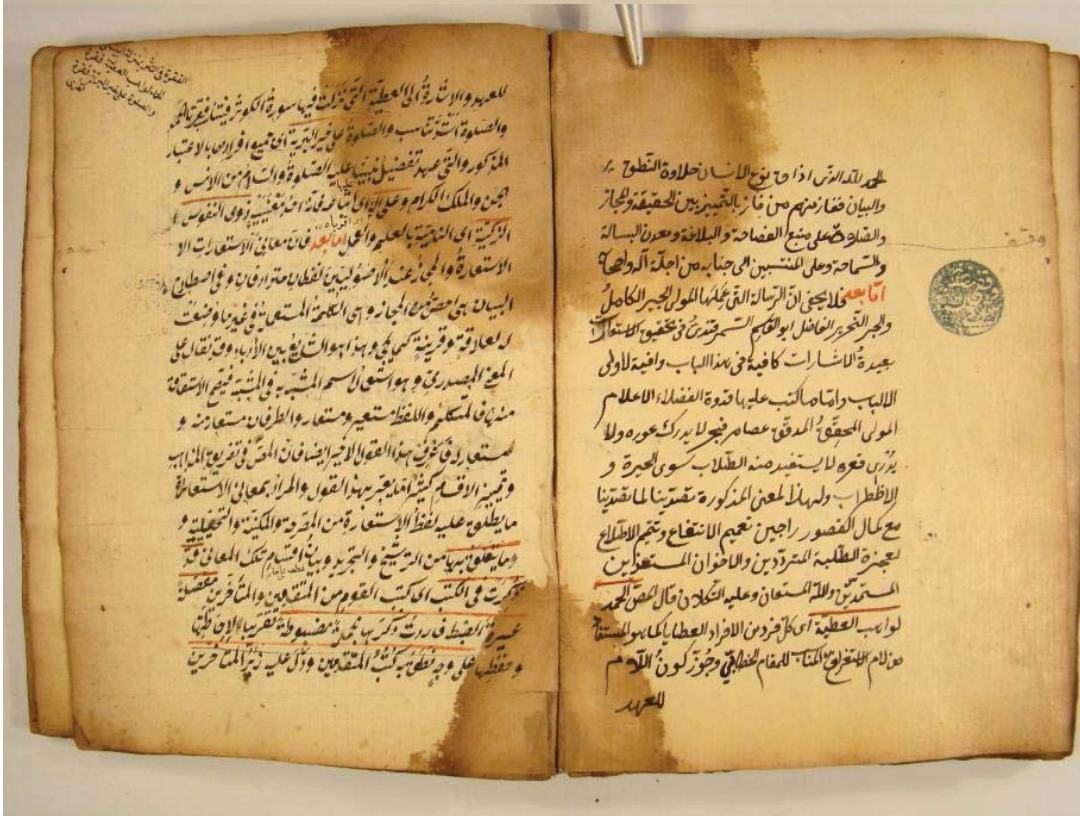 الحمد لله الذى اذاق نوع الانسان حلاوة النطق
والبيان ففاز منهم من فاز بالتمييز بين الحقيقة والمجاز
والصلاة على منبع الفصاحة والبلاغة ومعدن البسالة
والسماحة وعلى المنتسبين الى جنابه من اجلة آله واصحابه
اما بعد فلا يخفى ان الرسالة التى عملها المولى الحبر الكامل
والحبر النحرير الفاضل ابو القسم السمرقندى فى تحقيق الاستعارات
بعيدة الاشارات كافية فى هذا الباب وافية لاولى
الالباب واما ما كتب عليها قدوة الفضلاء الاعلام
المولى المحقق المدقق عصام فبحر لا يدرك غوره ولا
يرى قعره لا يستفيد منه الطلاب سوى الحيرة و
الاظطراب ولهذا المعنى المذكورة تصدينا لما تصدينا
مع كمال القصور راجين تعميم الانتفاع وتتميم الاطلاع
لعجزة الطلبة المترددين والاخوان
المستمدين والله المستعان وعليه التكلان قال المص الحمد
لواهب العطية اى كل فرد من الافراد العطايا كما هو المستفاد
من لام الاستغراق المناسب للمقام الخطابى وجوز كون اللام
للعهد
وقف
للعهد والاشارة الى العطية التى نزلت فيها سورة الكوثر
والصلوة والصلوة على خير البرية اى جميع افرادها بالاعتبار
المذكور والتى عهد تفضيل نبينا عليه الصلوة والسلام من الانس و
الجن والملك الكرام وعلى آله اى ذوى النفوس
الزكية اى بالعلم والعمل اما بعد فان معانى الاستعارات الا
الاستعارة والمجاز عند الاصوليين لفظان مترادفان وفى اصطلاح
البيان هى اخص من المجاز وهى الكلمة المستعملة فى غير ما وضعت
له لعلاقة وقرينة كما يجئ وهذا هو الشايع بين الادباء وقد تقال على
المعنى المصدرى وهو استعمال اسم المشبه به فى المشبه فيصح الاشتقاق
منها فالمتكلم واللفظ مستعير ومستعار والطرفان مستعار منه و
المستعار له فاعرف هذا القول الاخير ايضا فان المص فى تفريق المذاهب
وتمييز الاقسام كثيرا ما يعتبر بهذا القول والمراد بمعانى الاستعارة
ما يطلق عليه لفظ الاستعارة من المصرحة والمكنية والتخييلية و
وما يتعلق بها من الترشيح والتجريد وبيان اقسام تلك المعانى قد
ذكرت فى الكتب اى كتب القوم من المتقدمين والمتأخرين مفصلة
عسيرة الضبط فاردت ذكرها مجملة مضبوطة تقريبا
وحفظها على وجه نطق به كتب المتقدمين ودل عليه زبر المتأخرين